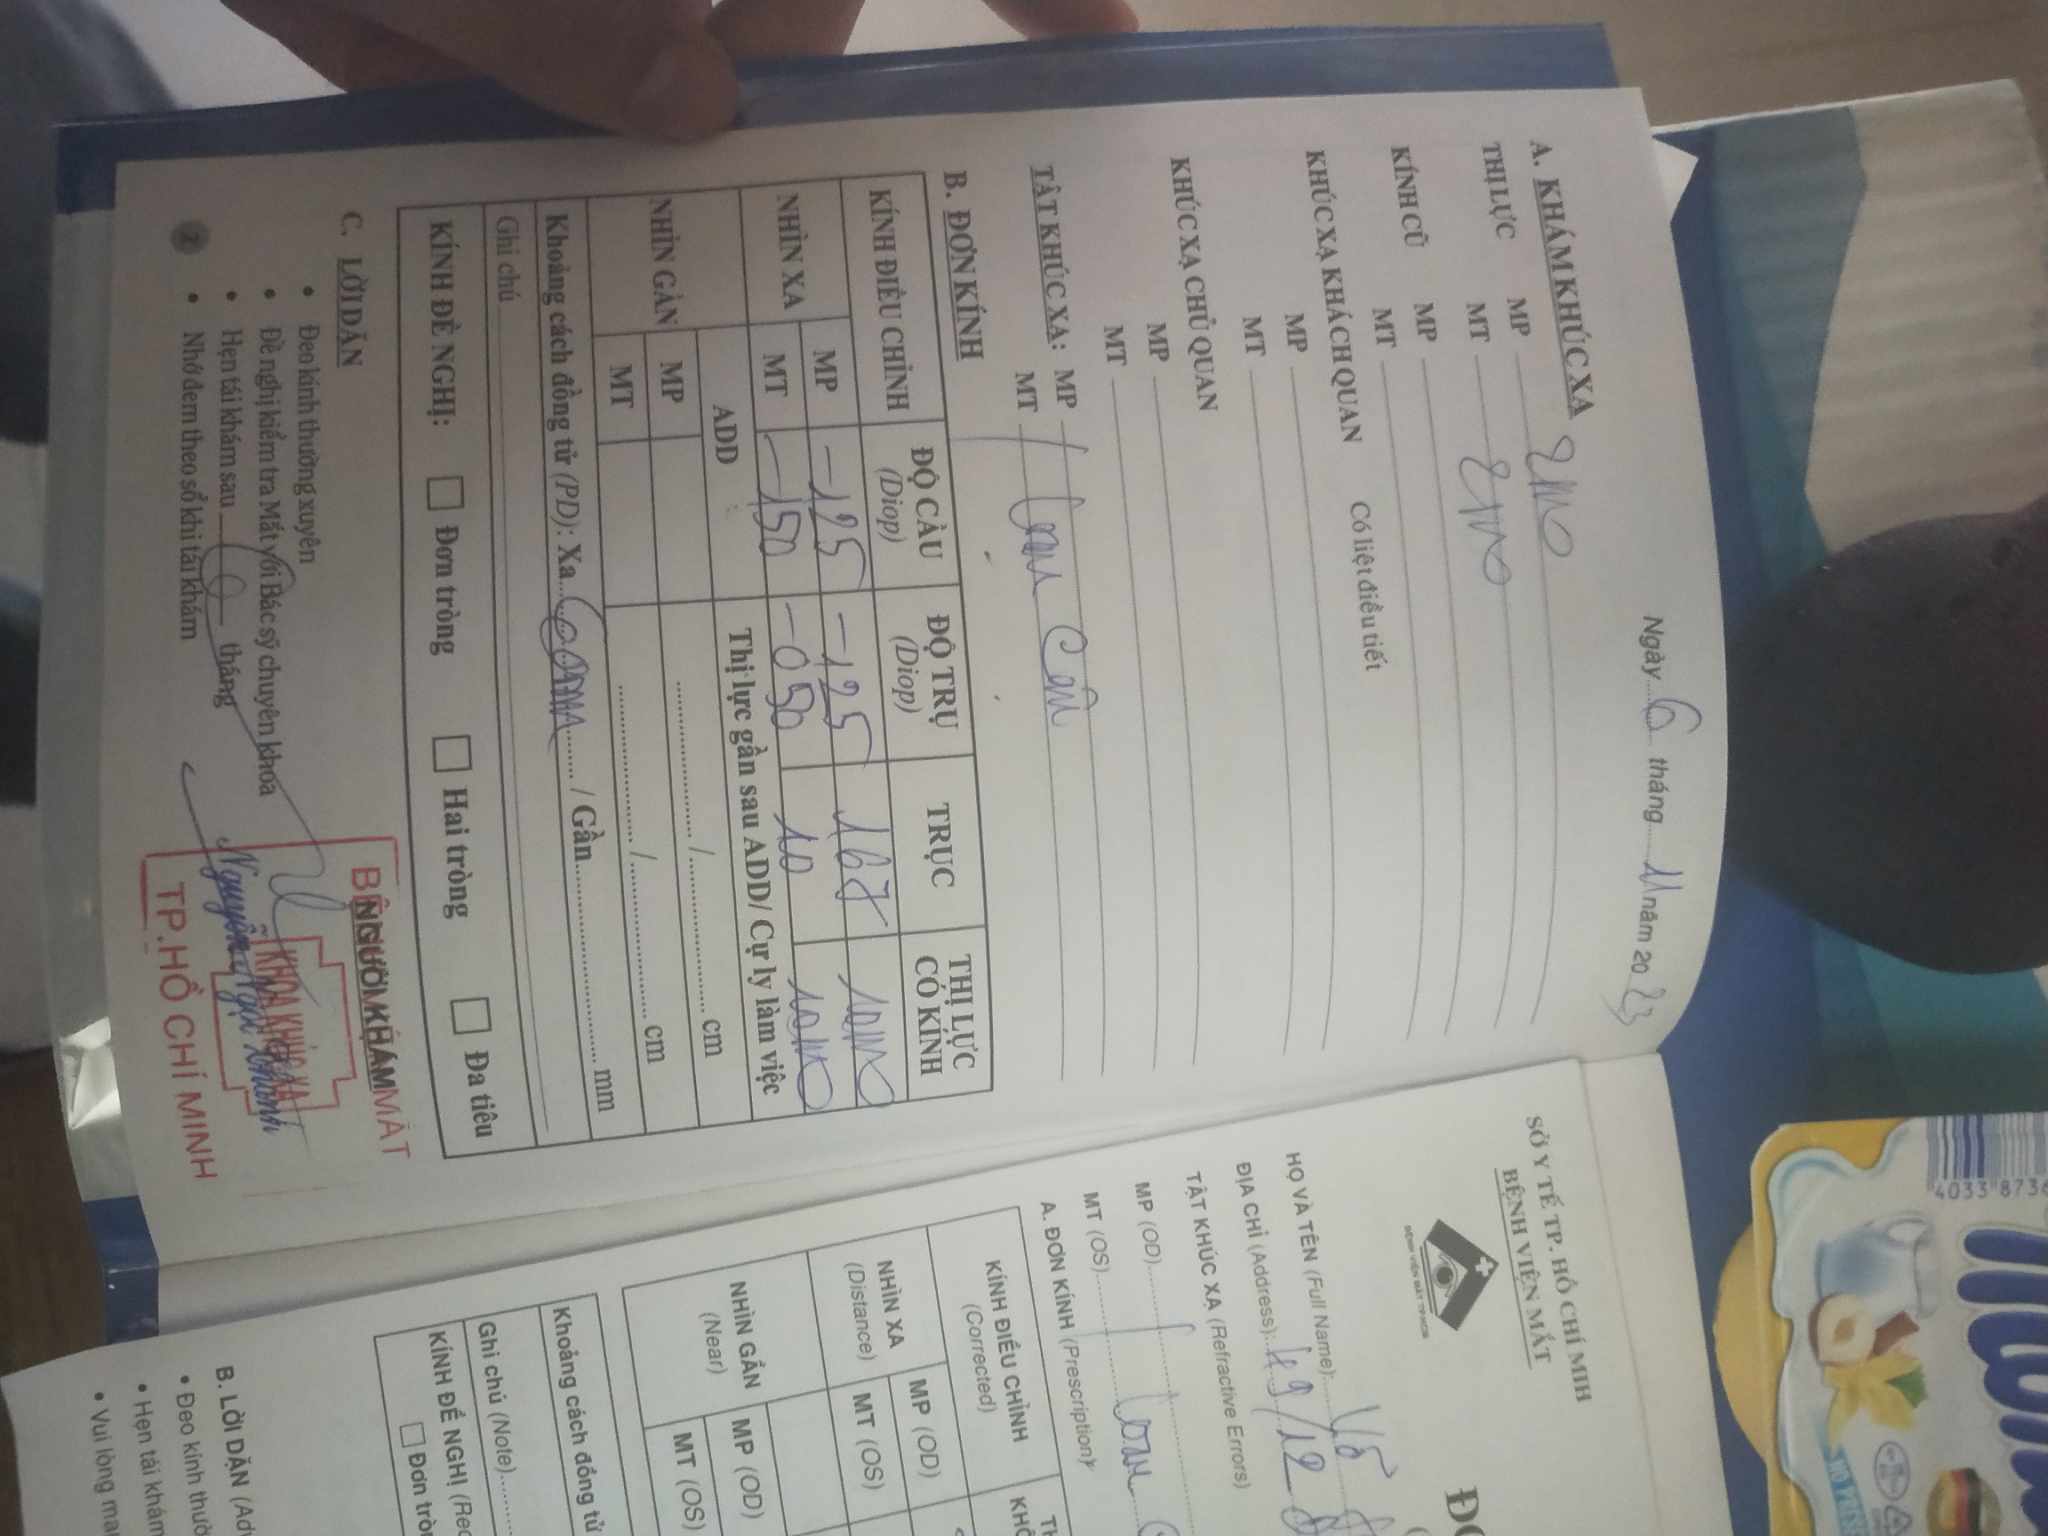 4033 873
NO PRESE
Ngày 6 tháng 11 năm 2023
A. KHÁM KHÚC XẠ
THỊ LỰC MP 2/10
MT 2/10
KÍNH CŨ MP
MT
KHÚC XẠ KHÁCH QUAN Có liệt điều tiết
MP
MT
KHÚC XẠ CHỦ QUAN
MP
MT
TẬT KHÚC XẠ: MP
MT Loạn Cận
B. ĐƠN KÍNH
KÍNH ĐIỀU CHỈNH ĐỘ CẦU (Diop) ĐỘ TRỤ (Diop) TRỤC THỊ LỰC CÓ KÍNH
NHÌN XA MP -125 -125 167 10/10
MT -150 -050 10 10/10
NHÌN GẦN ADD Thị lực gần sau ADD/ Cự ly làm việc
MP ........ /........ cm
MT ........ /........ cm
Khoảng cách đồng tử (PD): Xa 60mm / Gần........ mm
Ghi chú
KÍNH ĐỀ NGHỊ: Đơn tròng Hai tròng Đa tiêu
C. LỜI DẶN
• Đeo kính thường xuyên
• Đề nghị kiểm tra Mắt với Bác sỹ chuyên khoa
• Hẹn tái khám sau 6 tháng
• Nhớ đem theo sổ khi tái khám
2
NGƯỜI KHÁM
BỆNH VIỆN MẮT
KHOA KHÚC XẠ
Nguyễn Ngọc Khánh
TP.HỒ CHÍ MINH
SỞ Y TẾ TP. HỒ CHÍ MIH
BỆNH VIỆN MẮT
BỆNH VIỆN MẮT TP.HCM
HỌ VÀ TÊN (Full Name): Võ
ĐỊA CHỈ (Address): 49/12
TẬT KHÚC XẠ (Refractive Errors)
MP (OD)
MT (OS) Loạn
A. ĐƠN KÍNH (Prescription)
KÍNH ĐIỀU CHỈNH (Corrected)
NHÌN XA (Distance) MP (OD)
MT (OS)
NHÌN GẦN (Near) MP (OD)
MT (OS)
Khoảng cách đồng tử
Ghi chú (Note)
KÍNH ĐỀ NGHỊ (Rec
Đơn trò
B. LỜI DẶN (Adv
• Đeo kính thườ
• Hẹn tái khám
• Vui lòng ma